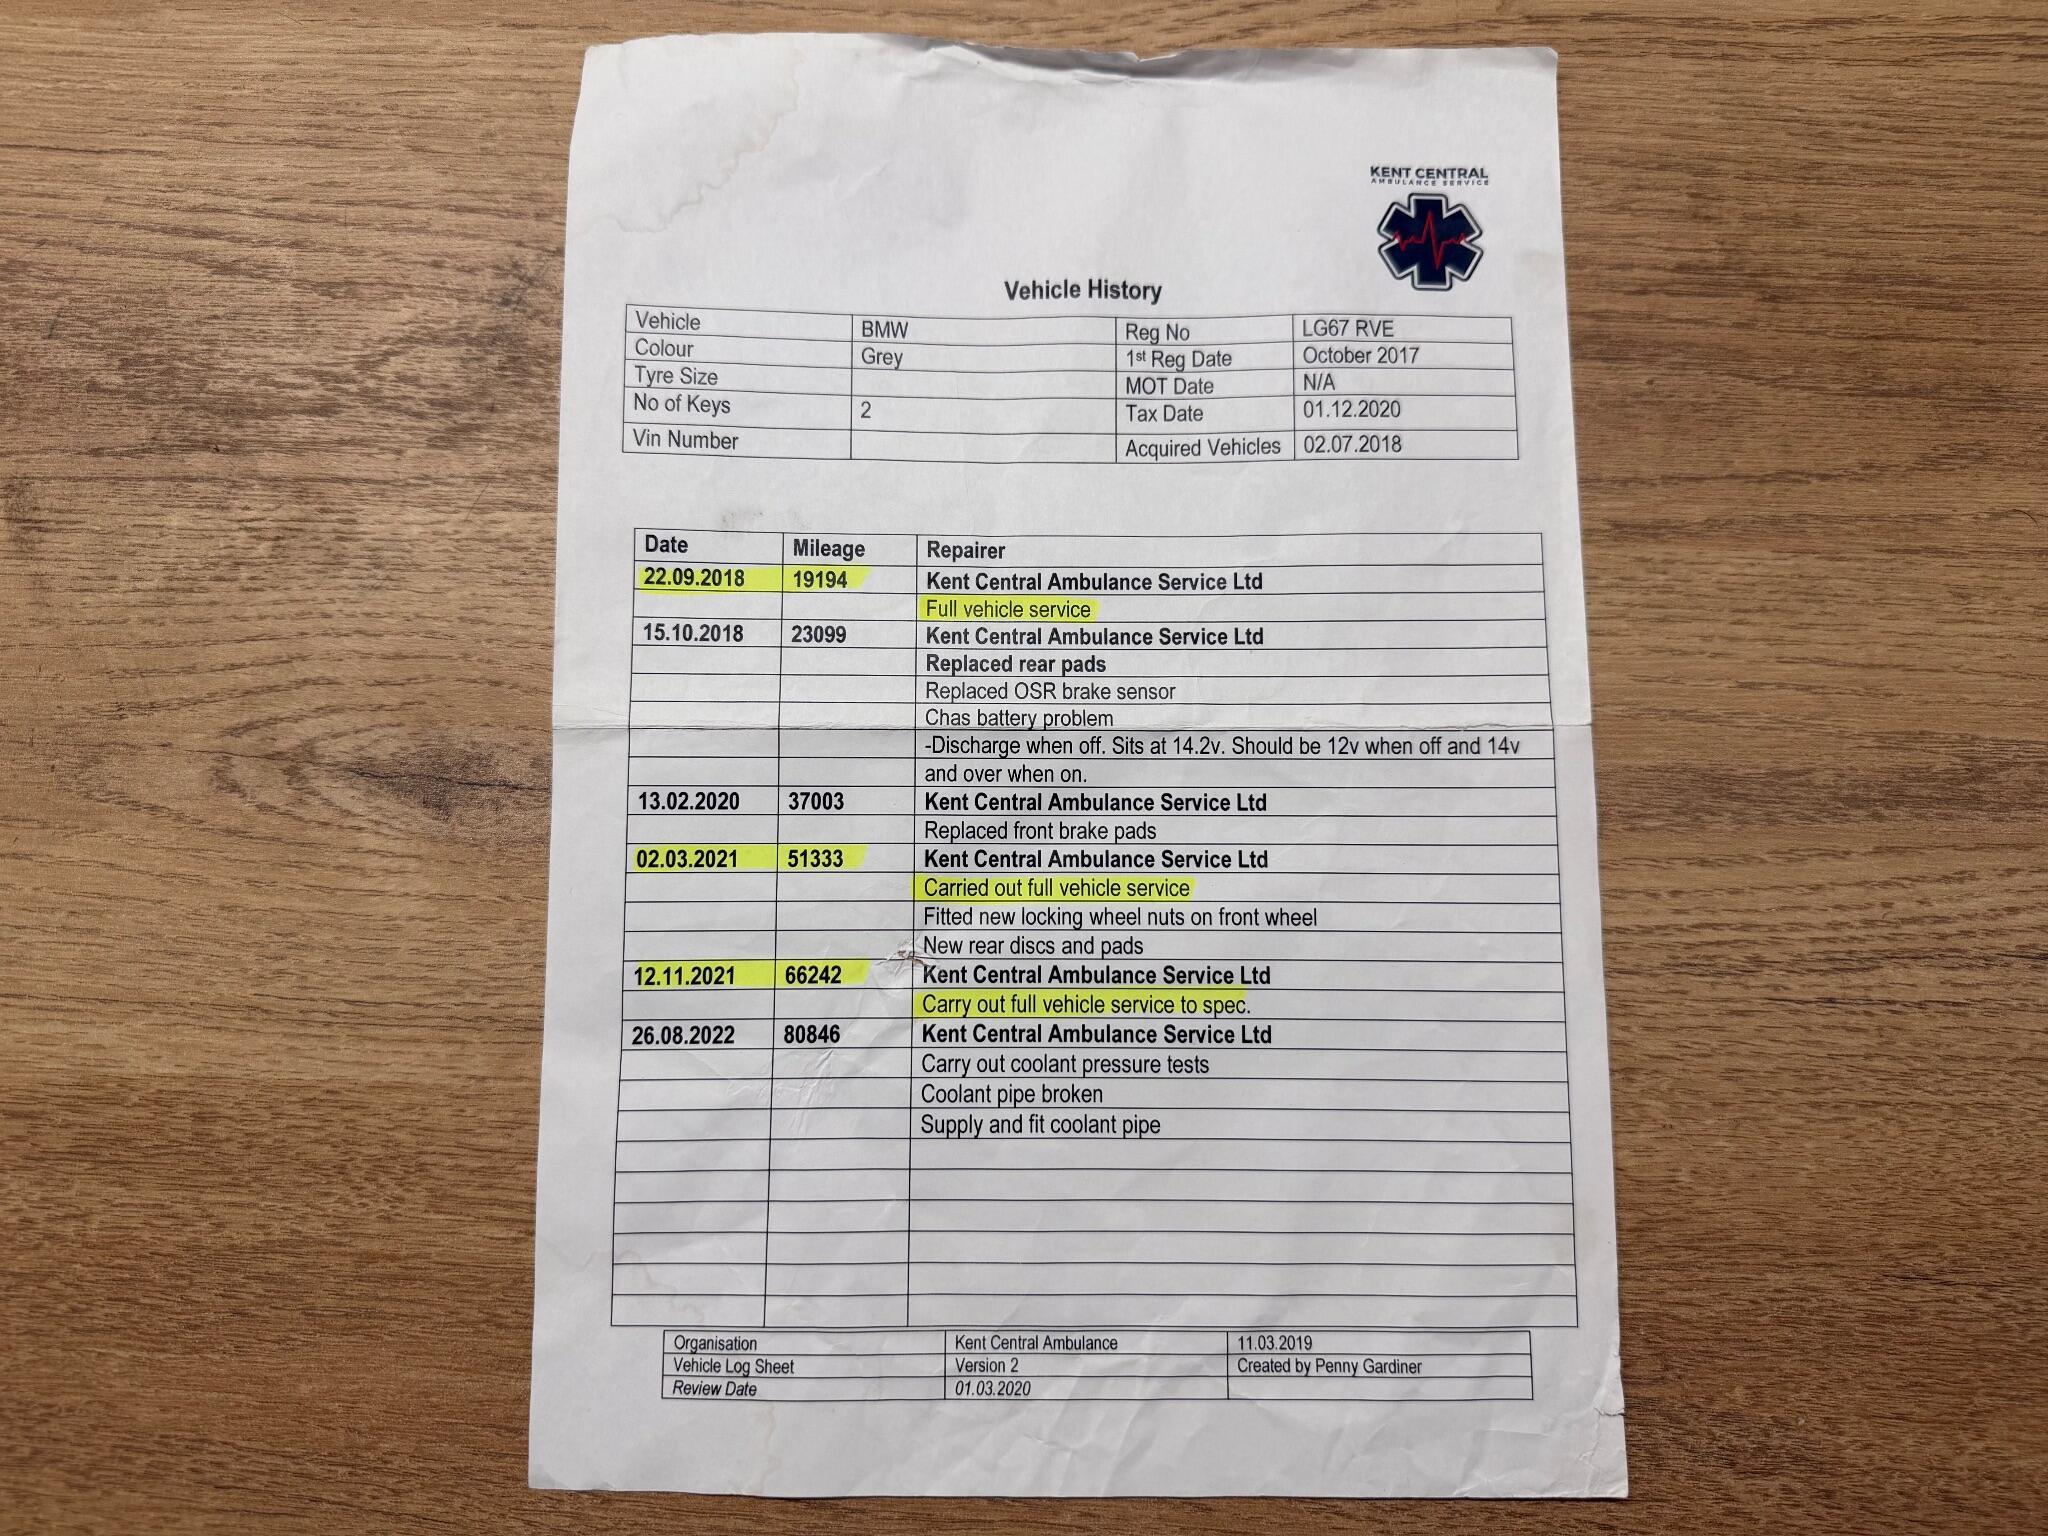 KENT CENTRAL
AMBULANCE SERVICE
Vehicle History
Vehicle BMW Reg No LG67 RVE
Colour Grey 1st Reg Date October 2017
Tyre Size MOT Date N/A
No of Keys 2 Tax Date 01.12.2020
Vin Number Acquired Vehicles 02.07.2018
Date Mileage Repairer
22.09.2018 19194 Kent Central Ambulance Service Ltd
Full vehicle service
15.10.2018 23099 Kent Central Ambulance Service Ltd
Replaced rear pads
Replaced OSR brake sensor
Chas battery problem
-Discharge when off. Sits at 14.2v. Should be 12v when off and 14v
and over when on.
13.02.2020 37003 Kent Central Ambulance Service Ltd
Replaced front brake pads
02.03.2021 51333 Kent Central Ambulance Service Ltd
Carried out full vehicle service
Fitted new locking wheel nuts on front wheel
New rear discs and pads
12.11.2021 66242 Kent Central Ambulance Service Ltd
Carry out full vehicle service to spec.
26.08.2022 80846 Kent Central Ambulance Service Ltd
Carry out coolant pressure tests
Coolant pipe broken
Supply and fit coolant pipe
Organisation Kent Central Ambulance 11.03.2019
Vehicle Log Sheet Version 2 Created by Penny Gardiner
Review Date 01.03.2020